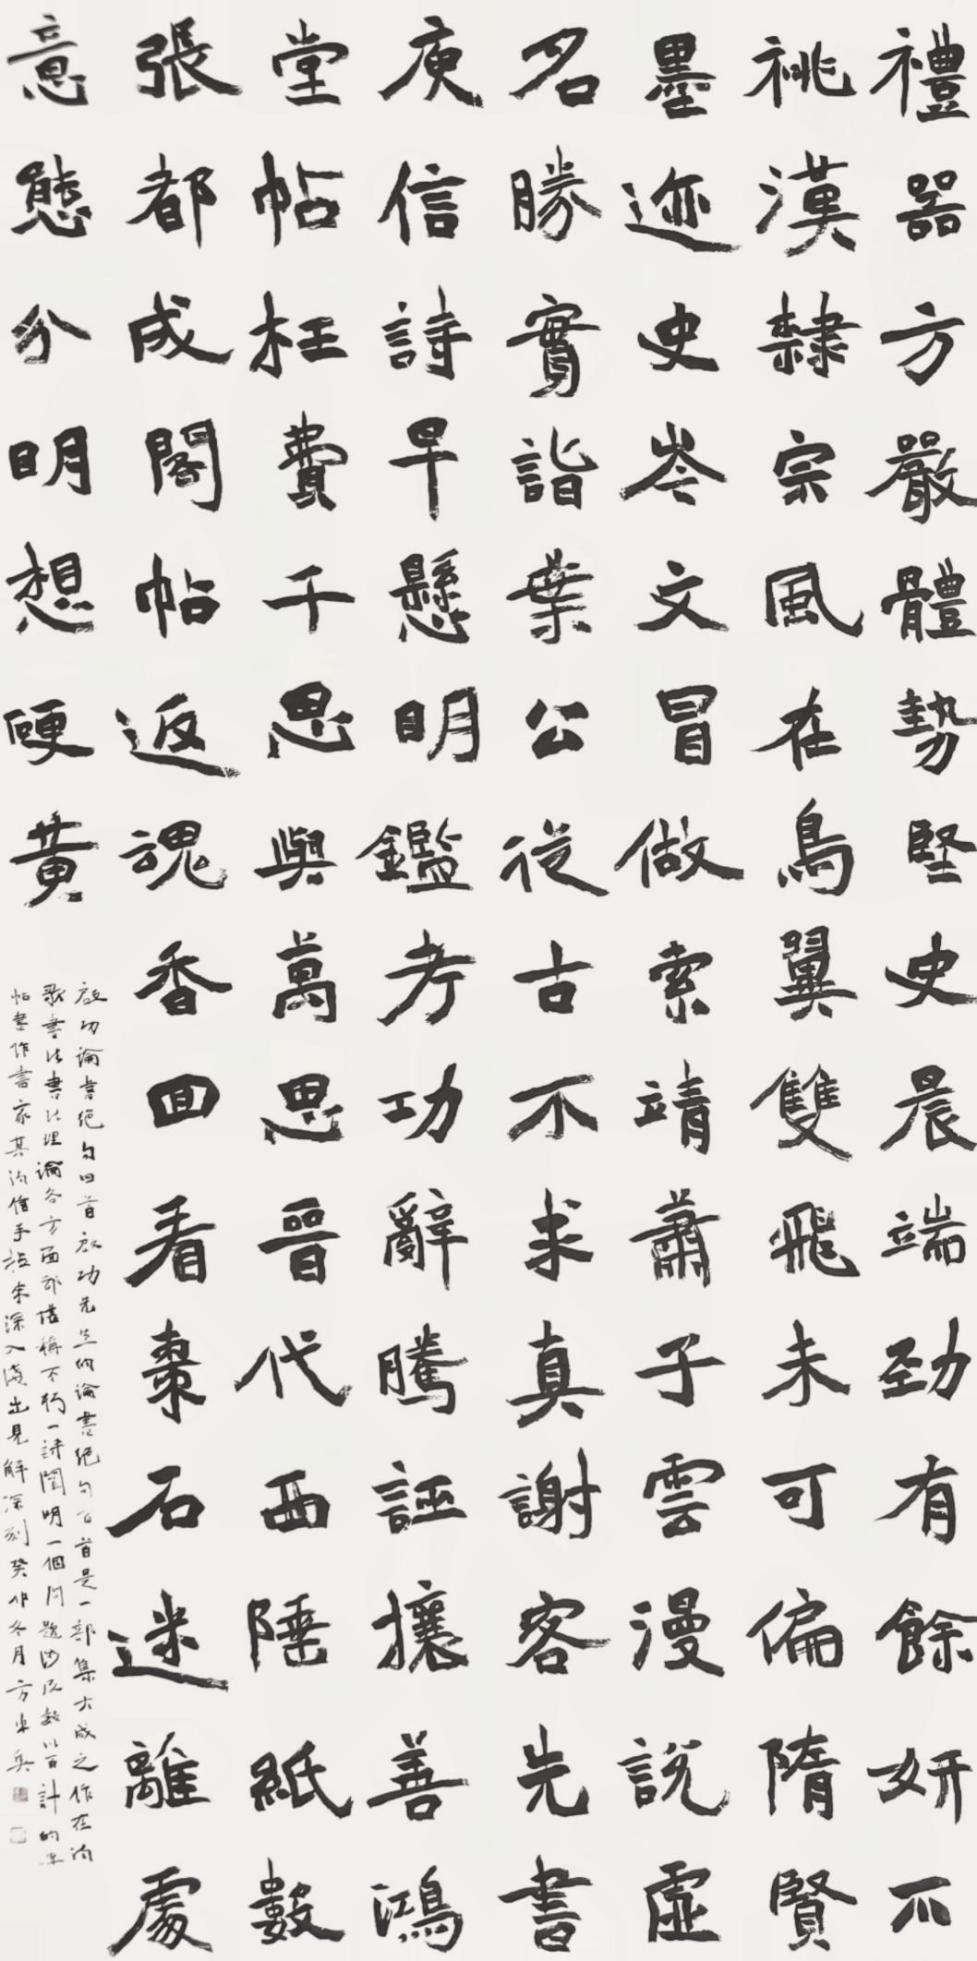 禮器方嚴體勢堅史晨端劲有餘妍不
祧漢隸宗風在鳥翼雙飛未可偏隋賢
墨迹史岑文冒做索靖蕭子雲漫說虛
名勝實詣葉公從古不求真謝客先書
庾信詩早懸明鑑考功辭騰誣攘善鴻
堂帖枉費千思與萬思晉代西陲紙數
張都成閣帖返魂香回看棗石迷離處
意態分明想硬黄
啟功論書絕句四首啟功先生的論書絕句百首是一部集大成之作在內
歌書法書法理論各方面都堪稱不朽一詩闡明一個问題涉及數以百計的
帖書作書家其內信手拈来深入淺出見解深刻癸卯冬月方